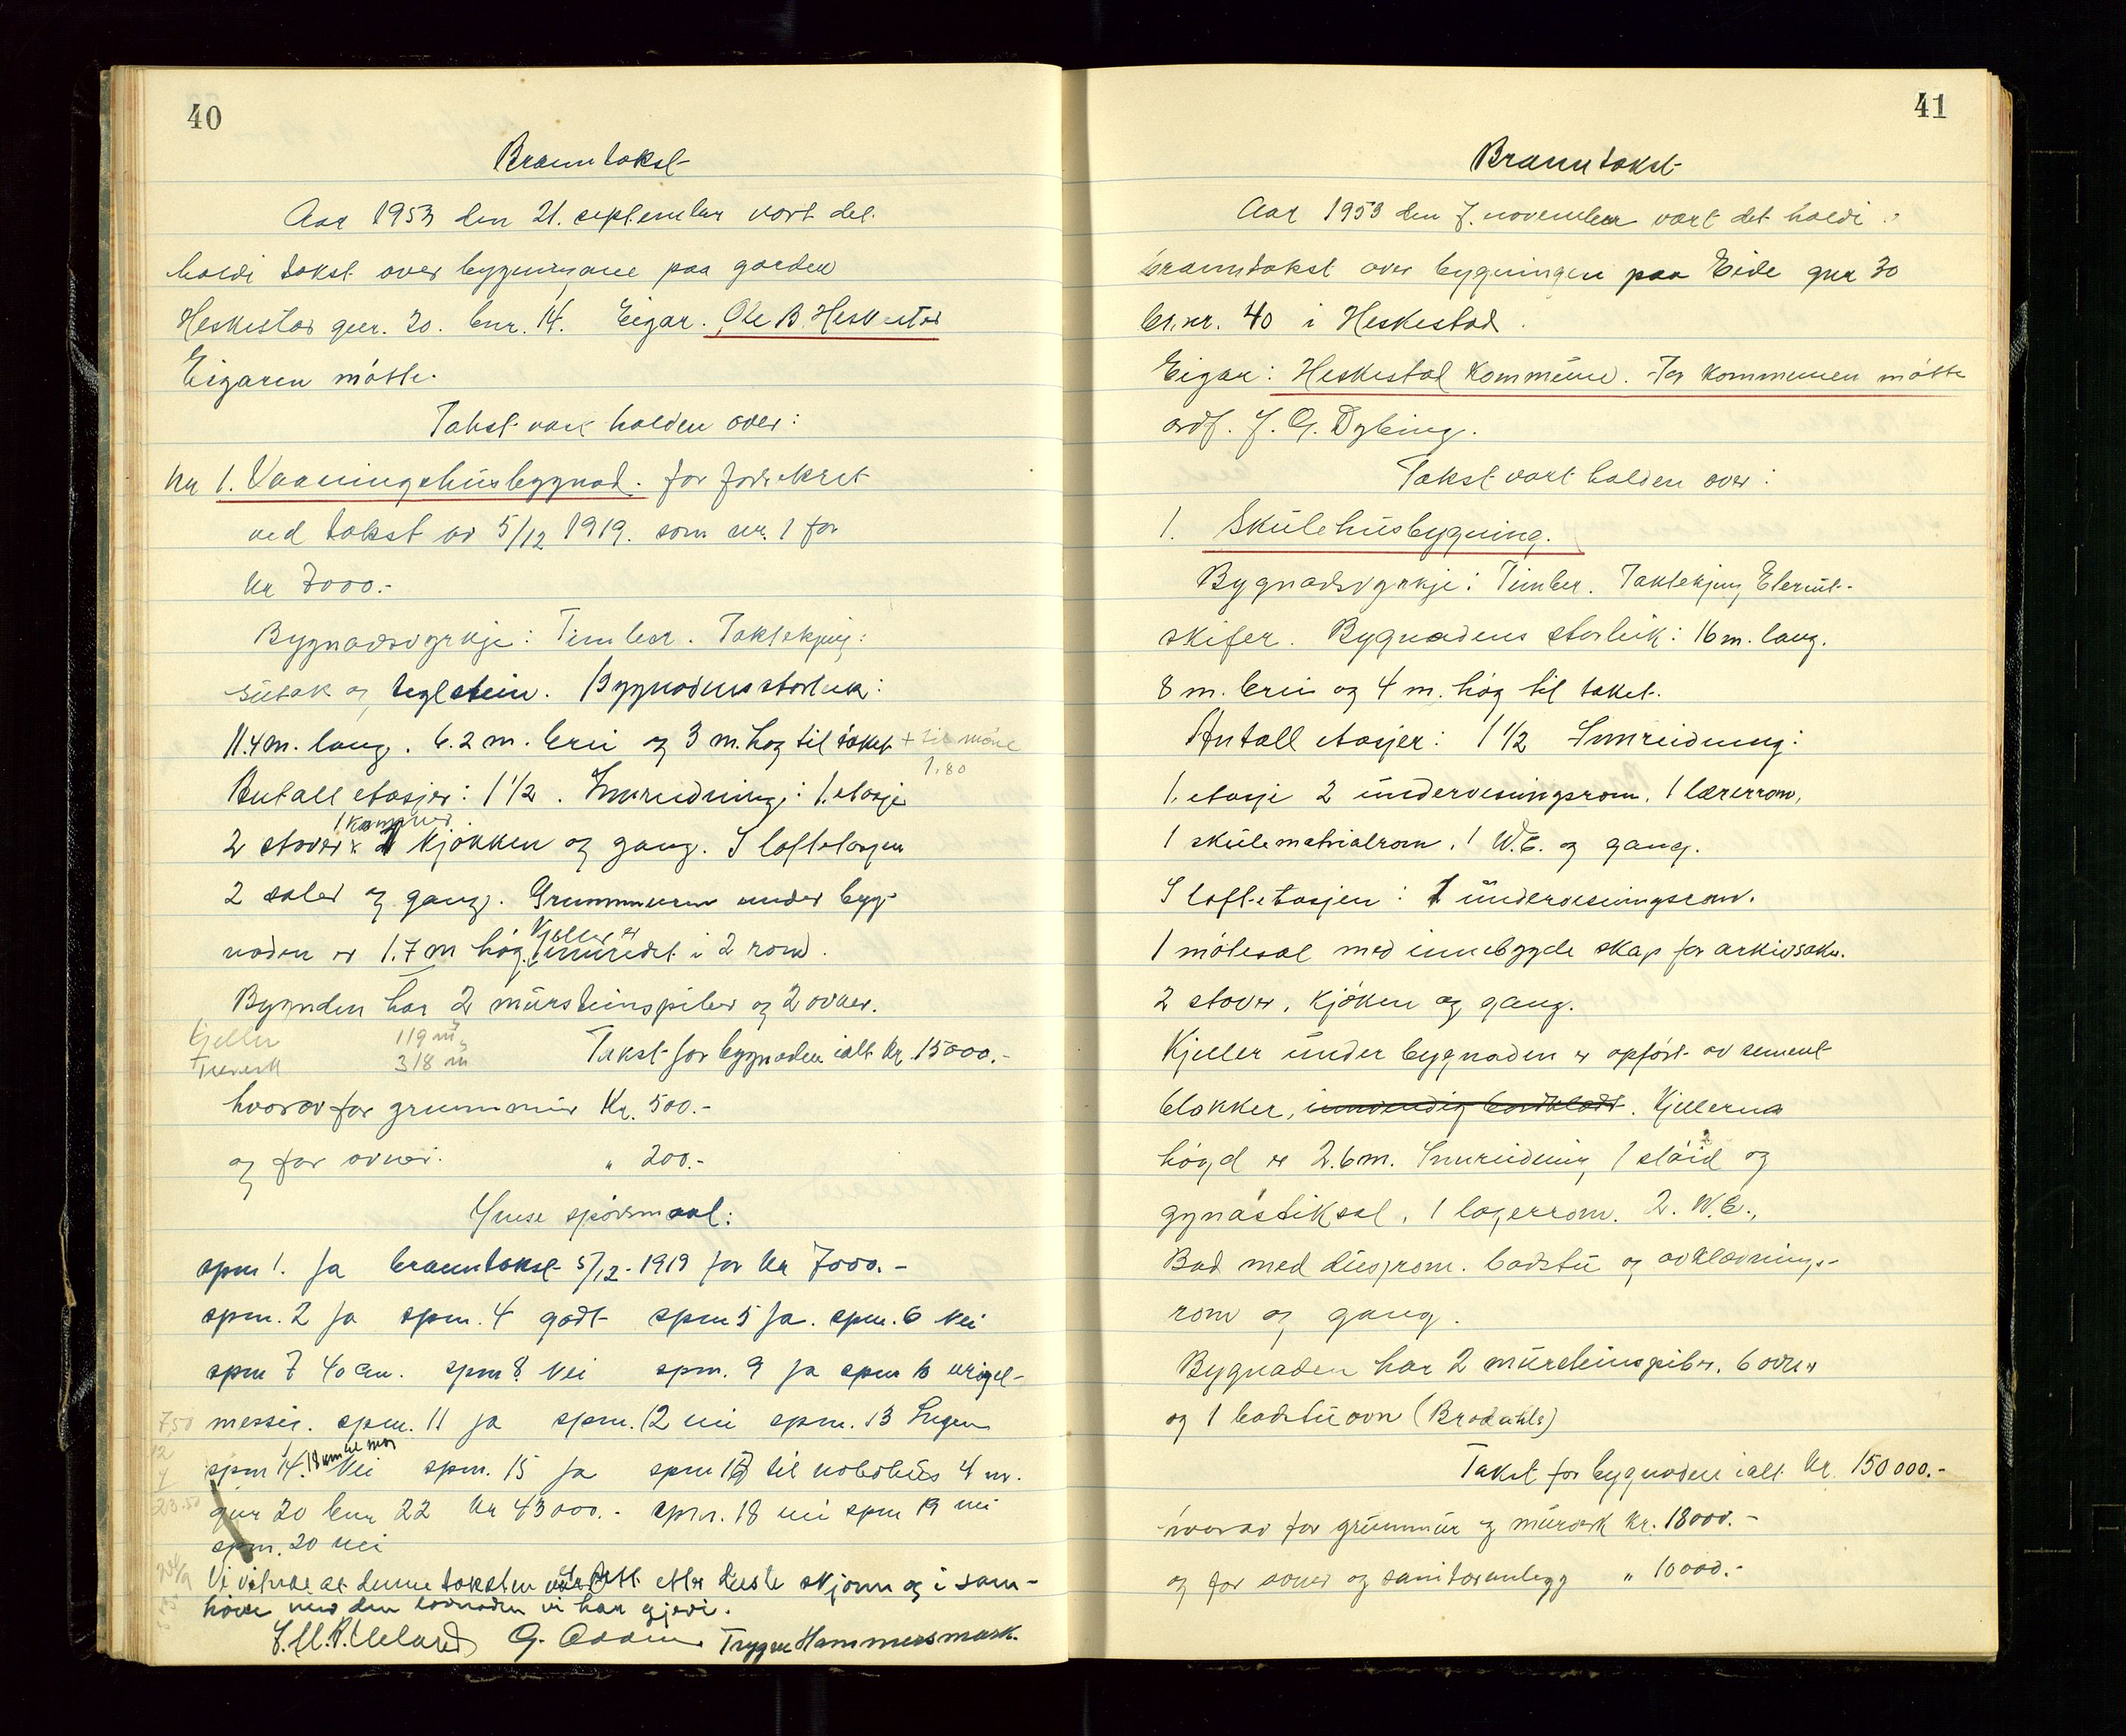 40
Branntakst
Aar 1953 den 21. september vart det
haldi takst over bygningane paa garden
Heskestad gnr. 20. bnr. 14. Eigar. Ole B. Heskestad
Eigaren møtte.
Takst vart halden over:
Nr 1. Vaaningshusbygnad. før forsekret
ved takst av 5/12 1919. som nr. 1 for
kr 7000.-
Bygnadsvyrkje: Timber. Taktekjing:
sutak og teglstein. Bygnadens storleik:
11.4 m. lang. 6.2 m. brei og 3 m. høg til taket + til møne
1.80
Antall etasjer: 1 1/2. Innreidning: 1. etasje
1 kammer
2 stover 1 kjøkken og gang. I loftetasjen
2 saler og gang. Grunnmuren under byg-
Kjeller er
naden er 1.7 m høg. innredet i 2 rom.
Bygnden har 2 mursteinspiber og 2 ovner.
Kjeller 119 m3
Treverk 318 m
Takst for bygnaden ialt kr. 15000.-
hvorav for grunnmur Kr. 500.-
og for ovner. " 200.-
Ymse spørsmaal:
spm 1. Ja branntakst 5/12-1919 for kr 7000.-
spm. 2 Ja spm. 4 godt spm 5 Ja. spm. 6 Nei
spm 7 40 cm. spm 8 Nei spm. 9 Ja spm 10 urigel-
7,50 messig. spm. 11 ja spm. 12 nei spm. 13 Ingen
12
spm 14. Nei spm. 15 Ja spm 16 til nabohus 4 m.
23.50 gnr 20 bnr 22 kr 43000.- spm. 18 nei spm 19 nei
spm. 20 nei
Vi vitnar at denne taksten er sett etter beste skjønn og i sam-
høve med den lovnaden vi har gjevi.
G. Trygve Hammersmark.
41
Branntakst
Aar 1953 den 7. november vart det haldi
branntakst over bygningen paa Eide gnr 30
br.nr. 40 i Heskestad.
Eigar: Heskestad kommune. For kommunen møtte
ordf. J. G. Dybing.
Takst vart halden over:
1. Skulehusbygning.
Bygnadsvyrkje: Timber. Taktekjing Eternit-
skifer. Bygnadens storleik: 16 m. lang.
8 m. brei og 4 m. høg til taket.
Antall etasjer: 1 1/2 Innreidning:
1. etasje 2 undervisningsrom. 1 lærerrom,
1 skulematrialrom. 1 W.C. og gang.
I loftetasjen: 1 undervisningsrom.
1 møtesal med innebygde skap for arkivsaker.
2 stover, kjøken og gang.
Kjeller under bygnaden er opført av sement
blokker, innvendig bordkledt. Kjellerns
høgd er 2.6 m. Innreidning 1 sløid og
gynastiksal, 1 lagerrom. 2. W.C.,
Bad med dusjrom. badstu og avklædnings-
rom og gang.
Bygnaden har 2 mursteinspiber. 6 ovner
og 1 badstuovn
Takst for bygnaden ialt kr. 150000.-
hvorav for grunnmur og murverk kr. 18000.-
og for ovner og sanitæranlegg " 10000.-